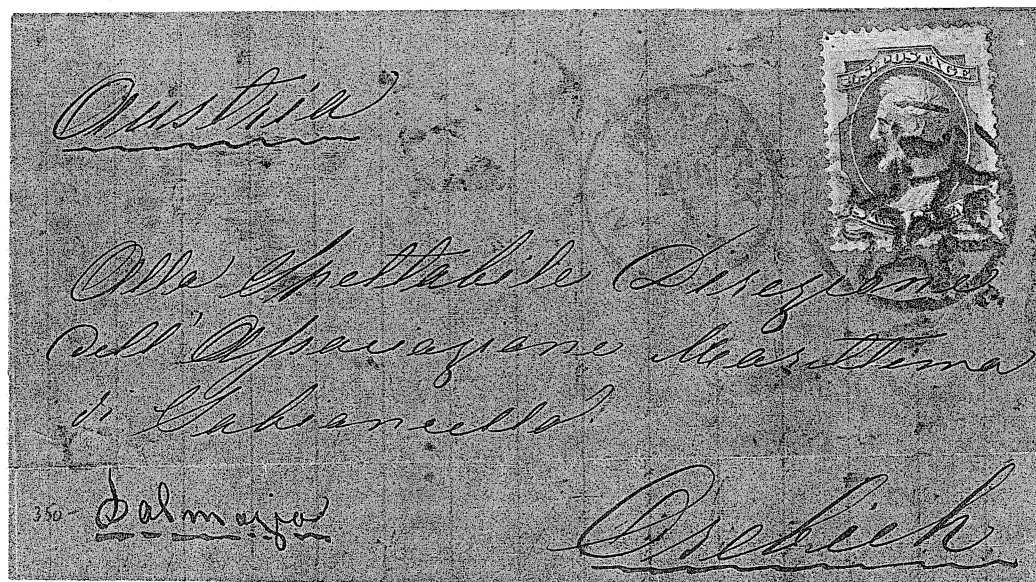 Austria
U.S. POSTAGE
Alla Spettabile Direzione
dell' Associazione Marittima
di Sabioncello
350- Dalmazia
Orebich